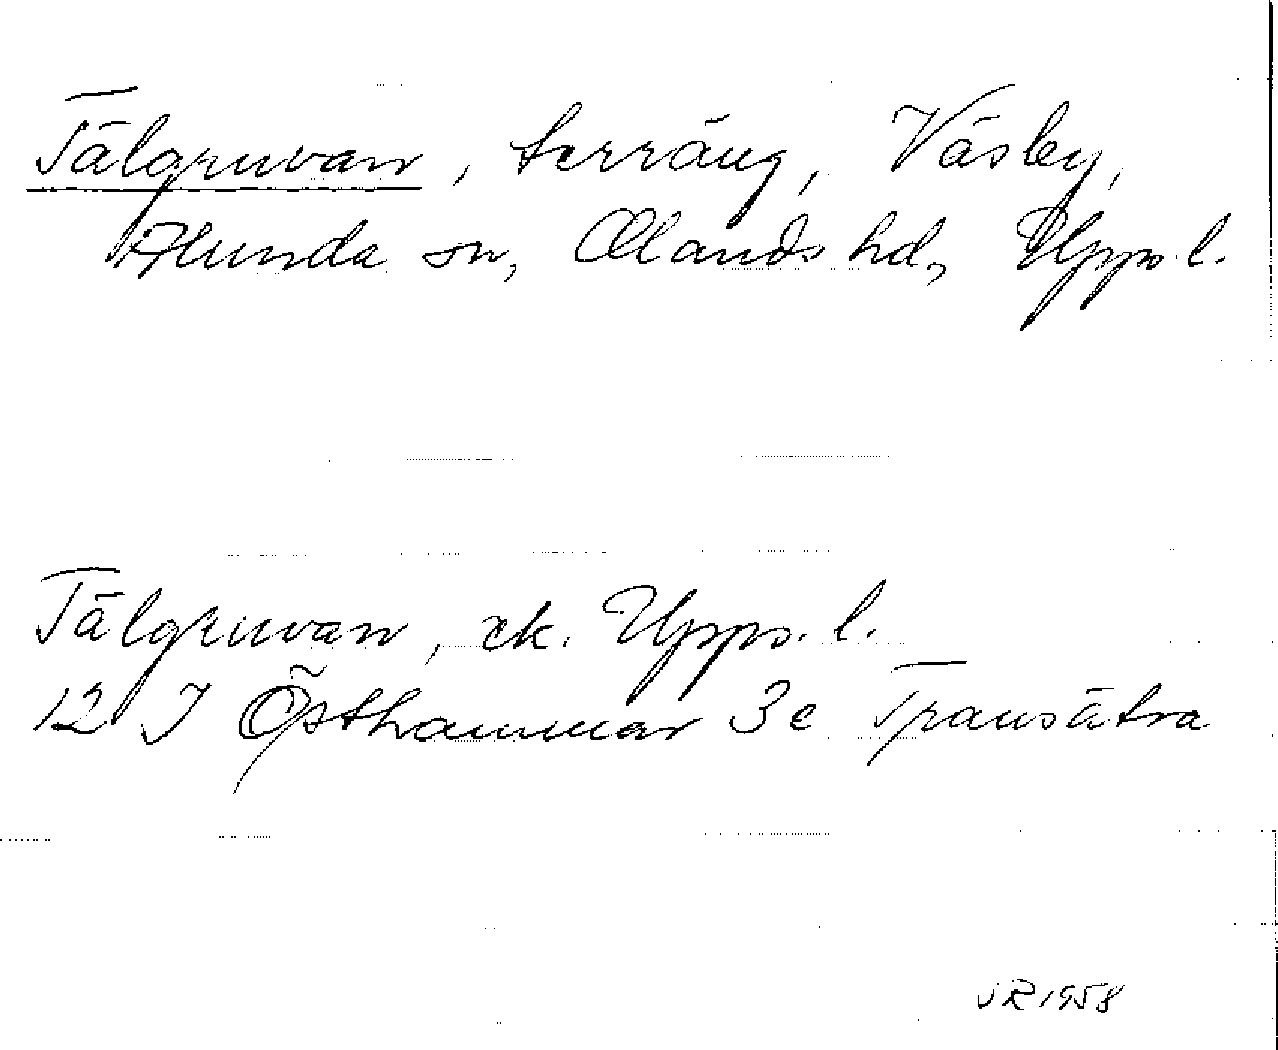 Tälgruvan, terräng, Väsby,
Alunda sn, Olands hd, Upps. l.
Tälgruvan, ek. Upps. l.
12 I Östhammar 3 c Pransätra
JR 1958